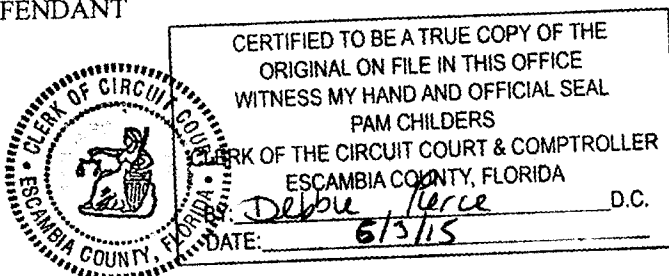 FENDANT
CERTIFIED TO BE A TRUE COPY OF THE
ORIGINAL ON FILE IN THIS OFFICE
WITNESS MY HAND AND OFFICIAL SEAL
PAM CHILDERS
CLERK OF THE CIRCUIT COURT & COMPTROLLER
ESCAMBIA COUNTY, FLORIDA
BY: Debbie Pierce D.C.
DATE: 6/3/15
CLERK OF CIRCUIT COURT
ESCAMBIA COUNTY, FLORIDA